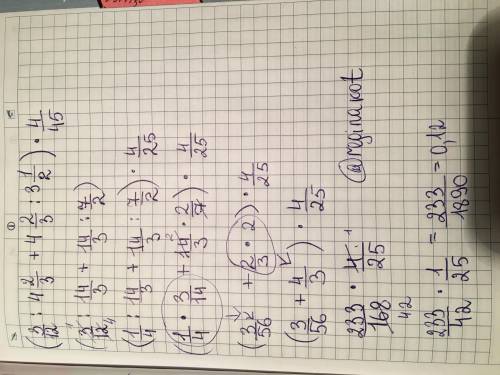 (3/12 : 4 2/3 + 4 2/3 : 3 1/2) · 4/45
(3/12 : 14/3 + 14/3 : 7/2)
(1/4 : 14/3 + 14/3 : 7/2) · 4/25
(1/4 · 3/14 + 14/3 · 2/7) · 4/25
(3/56 + 2·2/3) · 4/25
(3/56 + 4/3) · 4/25
233/168 · 4/25
42 1
233/42 · 1/25 = 233/1890 = 0,12